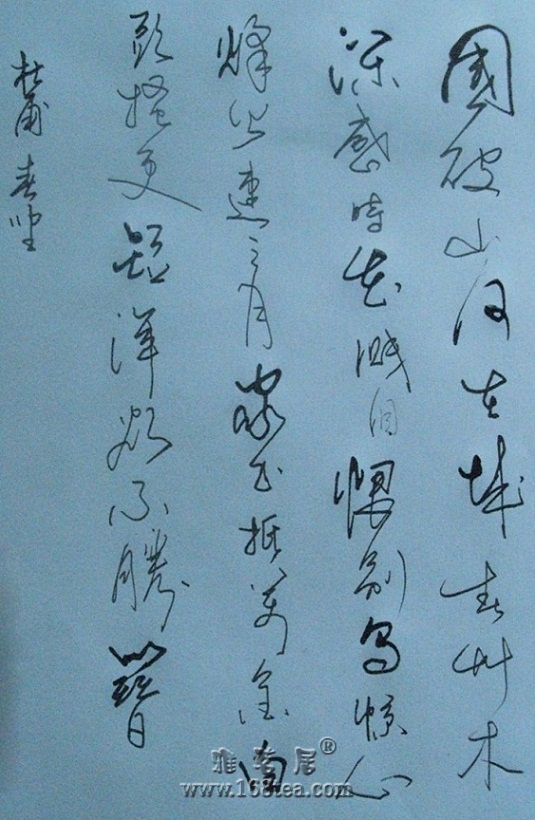 國破山河在城春艸木
深感時花溅泪恨别鸟惊心
烽火連三月家书抵萬金白
头搔更短浑欲不勝簪
杜甫春望
雅茗居®
www.168tea.com